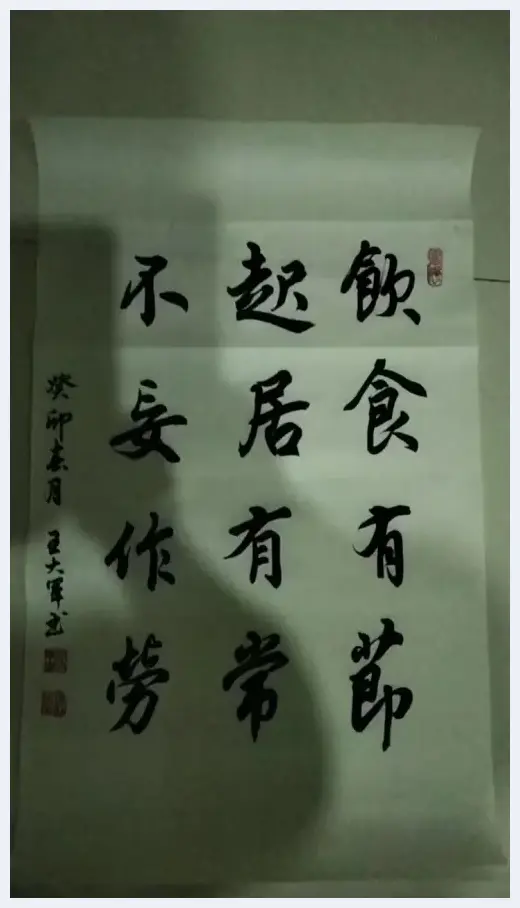 飲食有節
起居有常
不妄作勞
癸卯春月 王大軍书